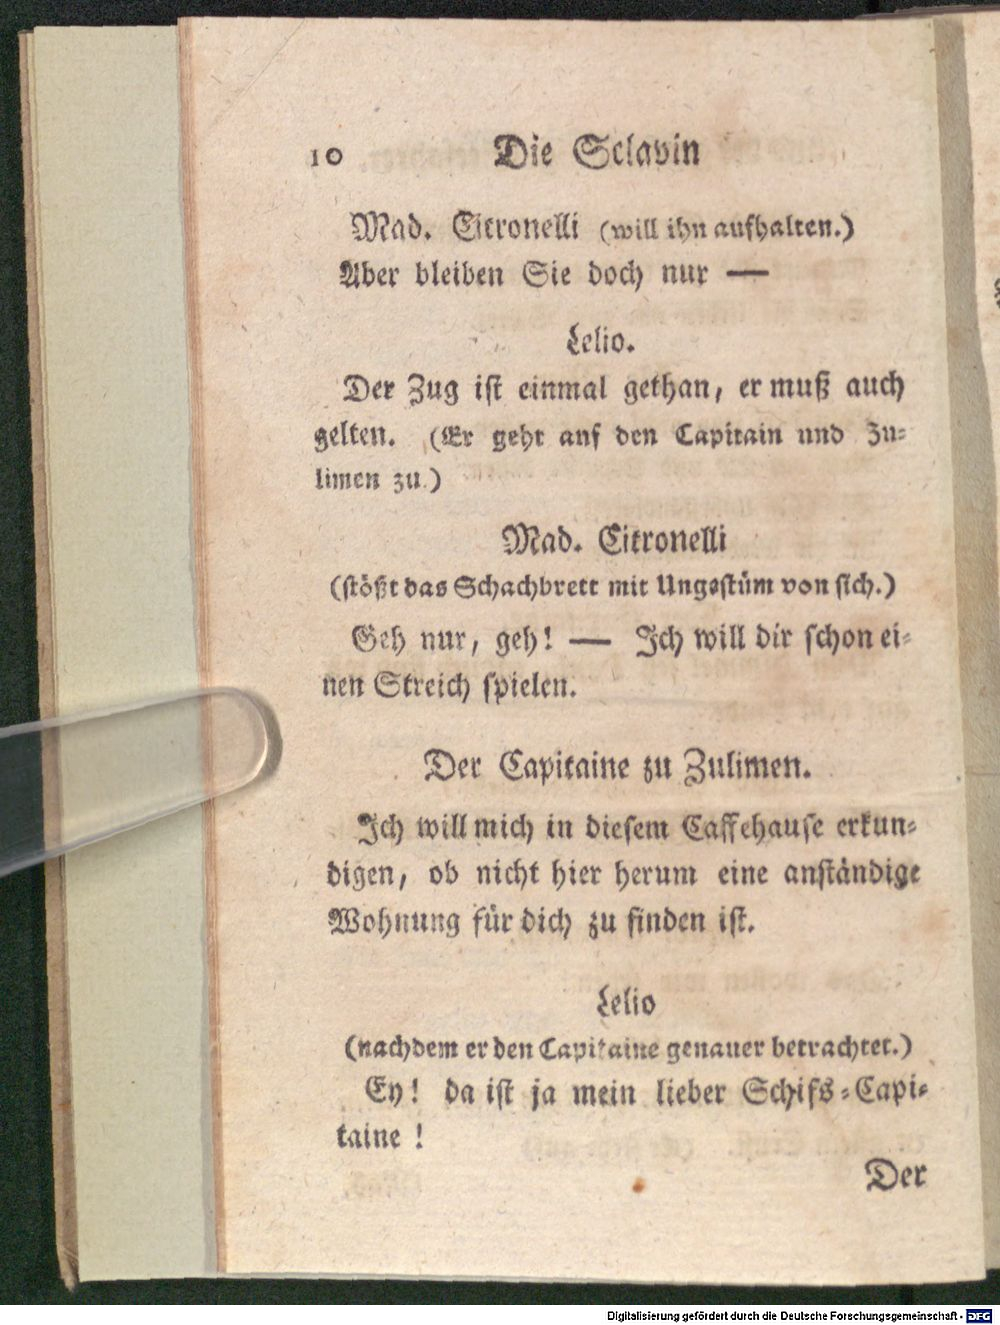 10 Die Sclavin
Mad. Citronelli (will ihn aufhalten.)
Aber bleiben Sie doch nur —
Lelio.
Der Zug ist einmal gethan, er muß auch
gelten. (Er geht auf den Capitain und Zu-
limen zu.)
Mad. Citronelli
(stößt das Schachbrett mit Ungestüm von sich.)
Geh nur, geh! — Ich will dir schon ei-
nen Streich spielen.
Der Capitaine zu Zulimen.
Ich will mich in diesem Caffehause erkun-
digen, ob nicht hier herum eine anständige
Wohnung für dich zu finden ist.
Lelio
(nachdem er den Capitaine genauer betrachtet.)
Ey! da ist ja mein lieber Schifs-Capi-
taine!
Der
Digitalisierung gefördert durch die Deutsche Forschungsgemeinschaft - DFG